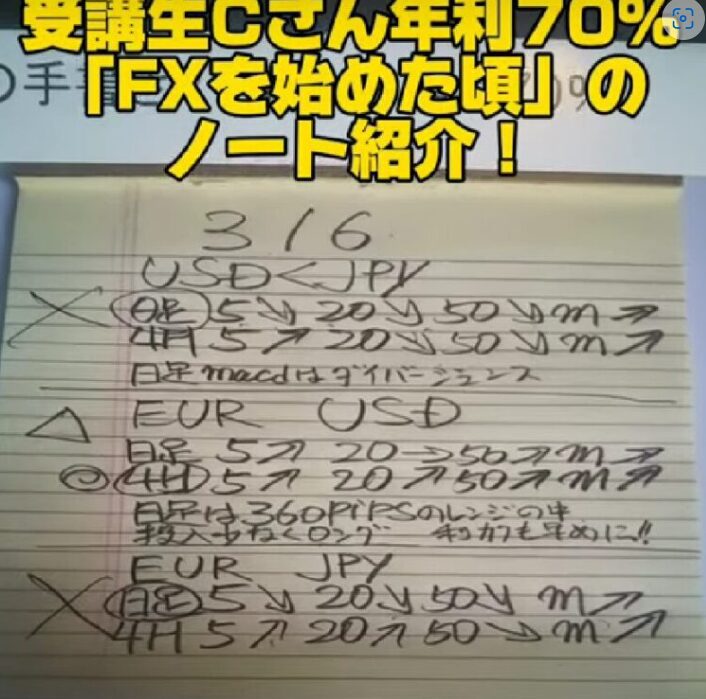 受講生Cさん年利70%
の手書
「FXを始めた頃」の
ノート紹介!
3/6
USD<JPY
× 日足 5↘ 20↘ 50↘ m↗
4H 5↗ 20↘ 50↘ m↗
日足macdはダイバージェンス
EUR USD
△ 日足 5↗ 20→ 50↗ m↗
◎ 4H 5↗ 20↗ 50↗ m↗
日足は360PiPSのレンジの中
投入少なくロング も早めに!!
EUR JPY
× 日足 5↘ 20↘ 50↘ m↗
4H 5↗ 20↗ 50↘ m↗